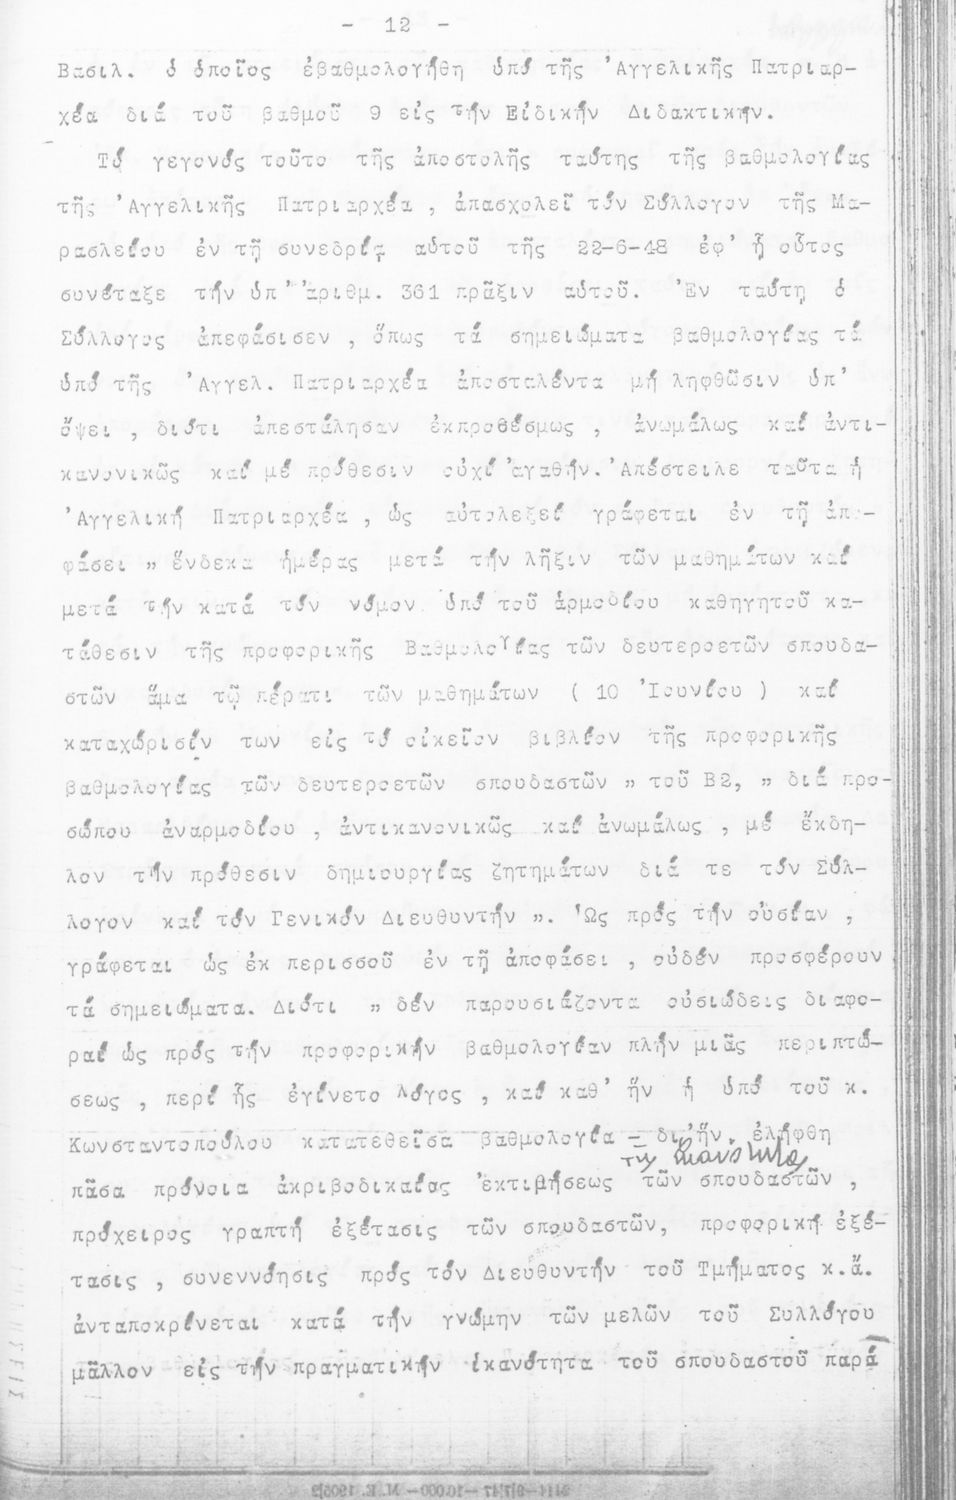 - 12 -
Βασιλ. ὁ ὁποῖος ἐβαθμολογήθη ὑπό τῆς ᾿Αγγελικῆς Πατριαρ-
χέα διά τοῦ βαθμοῦ 9 εἰς τήν Εἰδικήν Διδακτικήν.
Τό γεγονός τοῦτο τῆς ἀποστολῆς ταύτης τῆς βαθμολογίας
τῆς ᾿Αγγελικῆς Πατριαρχέα , ἀπασχολεῖ τόν Σύλλογον τῆς Μα-
ρασλείου ἐν τῇ συνεδρίᾳ αὐτοῦ τῆς 22-6-48 ἐφ᾿ ᾗ οὗτος
συνέταξε τήν ὑπ᾿ ᾿ἀριθμ. 361 πρᾶξιν αὐτοῦ. ᾿Εν ταύτη ὁ
Σύλλογος ἀπεφάσισεν , ὅπως τά σημειώματα βαθμολογίας τά
ὑπό τῆς ᾿Αγγελ. Πατριαρχέα ἀποσταλέντα μή ληφθῶσιν ὑπ᾿
ὄψει , διότι ἀπεστάλησαν ἐκπροθέσμως , ἀνωμάλως καί ἀντι-
κανονικῶς καί μέ πρόθεσιν οὐχί ἀγαθήν. Απέστειλε ταῦτα ἡ
᾿Αγγελική Πατριαρχέα , ὡς αὐτολεξεί γράφεται ἐν τῇ ἀπο-
φάσει „ ἕνδεκα ἡμέρας μετά τήν λῆξιν τῶν μαθημάτων καί
μετά τήν κατά τόν νόμον ὑπό τοῦ ἁρμοδίου καθηγητοῦ κα-
τάθεσιν τῆς προφορικῆς Βαθμολογίας τῶν δευτεροετῶν σπουδα-
στῶν ἅμα τῷ πέρατι τῶν μαθημάτων ( 10 ᾿Ιουνίου ) καί
καταχώρισίν των εἰς τό οἰκεῖον βιβλίον τῆς προφορικῆς
βαθμολογίας τῶν δευτεροετῶν σπουδαστῶν „ τοῦ Β2, „ διά προ-
σώπου ἀναρμοδίου , ἀντικανονικῶς καί ἀνωμάλως , μέ ἔκδη-
λον τήν πρόθεσιν δημιουργίας ζητημάτων διά τε τόν Σύλ-
λογον καί τόν Γενικόν Διευθυντήν „. ῾Ως πρός τήν οὐσίαν ,
γράφεται ὡς ἐκ περισσοῦ ἐν τῇ ἀποφάσει , οὐδέν προσφέρουν
τά σημειώματα. Διότι „ δέν παρουσιάζοντα οὐσιώδεις διαφο-
ραί ὡς πρός τήν προφορικήν βαθμολογίαν πλήν μιᾶς περιπτώ-
σεως , περί ἧς ἐγίνετο λόγος , καί καθ᾿ ἥν ἡ ὑπό τοῦ κ.
Κωνσταντοπούλου κατατεθεῖσα βαθμολογία – δι᾿ἥν ἐλήφθη
πᾶσα πρόνοια ἀκριβοδικαίας ἐκτιμήσεως τῶν σπουδαστῶν ,
πρόχειρος γραπτή ἐξέτασις τῶν σπουδαστῶν, προφορική ἐξέ-
τασις , συνεννόησις πρός τόν Διευθυντήν τοῦ Τμήματος κ.ἄ.
ἀνταποκρίνεται κατά τήν γνώμην τῶν μελῶν τοῦ Συλλόγου
μᾶλλον εἰς τήν πραγματικήν ἱκανότητα τοῦ σπουδαστοῦ παρά